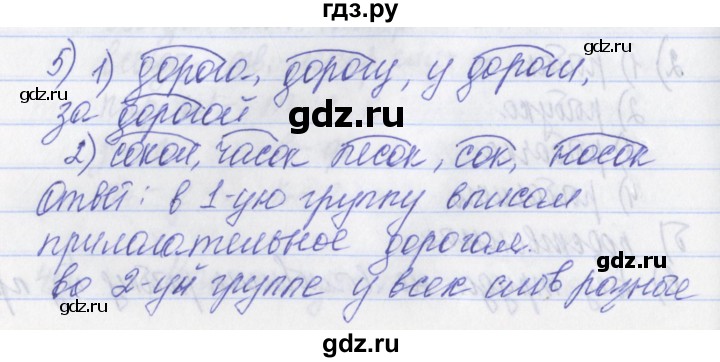 гдз.ру
5) 1) дорого, дорогу, у дороги,
за дорогой
2) сокол, часок песок, сок, носок
Ответ: в 1-ую группу вписал
прилагательное дорогая.
во 2-ую группе у всех слов разные
gdz.ru
gdz.ru
gdz.ru
gdz.ru
gdz.ru
gdz.ru
gdz.ru
gdz.ru